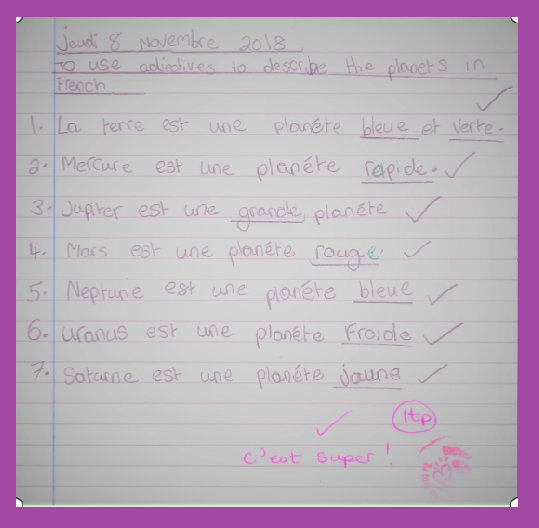 Jeudi 8 Novembre 2018
To use adjectives to describe the planets in
French
1. La terre est une planéte bleue et verte.
2. Mercure est une planéte rapide.
3. Jupiter est une grande planéte
4. Mars est une planéte rouge.
5. Neptune est une planéte bleue
6. Uranus est une planéte Froide
7. Saturne est une planéte jaune
1tp
c'est super!